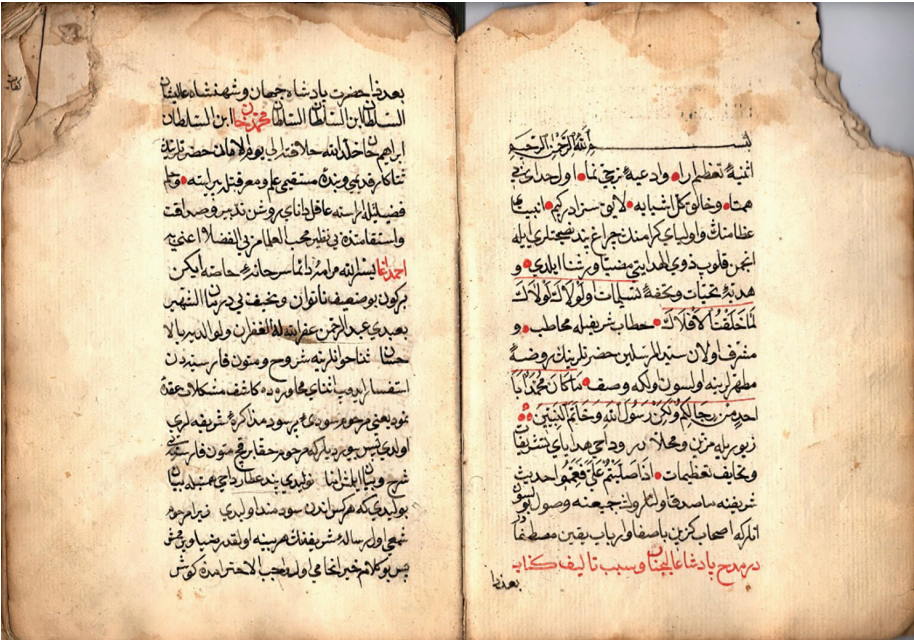 بسم الله الرحمن الرحيم
اثنيهٔ تعظيم را و ادعيهٔ نما اول احدى بى
همتا و خالق كل اشيايه لايق سزادركيم انبياء
عظامنك و اولياى كرامنك چراغ پند نصيحتلرى ايله
انجمن قلوب ذوى الهدايتى مضيا و رشنا ايلدى و
هديهٔ تحيات و تحفهٔ تسليمات ولولاك لولاك
لما خلقت الافلاك خطاب شريفيله مخاطب و
مشرف اولان سيد المرسلين حضرتلرينك روضهٔ
مطهرلرينه اولسون اولكه وصف ما كان محمد ابا
احد من رجالكم ولكن رسول الله وخاتم النبيين
زيوريله مزين و محلادر و داخى هداياى تشريفات
و تحايف تعظيمات اذا صليتم على فعمموا حديث
شريفنه ماصدق جميعنه وصول بولسون
انلركه اصحاب كزين باصفا و ارباب يقين مصطفا
در مدح پادشاه عاليجنان وسبب تاليف كتاب
بعدذا
بعدذا حضرت پادشاه جهان و شهنشاه عاليشان
السلطان ابن السلطان السلطان محمد خان ابن السلطان
ابراهيم خان خلد الله خلافته الى يوم حضرتلرينك
ثناكار قديمى و بندهٔ مستقيمى علم و معرفتله پيراسته و حلم
فضيلتله اراسته عاقل داناى روشن تدبير و صداقت
و استقامتده بى نظير محب العلما مربى الفضلا اعنى به
احمد اغا يسر الله مرامه دائما سرخانهٔ خاصه ايكن
بركون بو ضعيف ناتوان و نحيف بى درمان الشهير
بعبدى عبد الرحمن عفر الله له الغفران ولوالديه بالاحسان
شروح و متون فارسيه دن
استفسار ايدوب اثناى محاورهده كاشف مشكلات عقده
يعنى مرحوم سودئ پرسود مذاكرهٔ شريفه لرى
اولدى پس بيورديلركه مرحوم متون فارسيه نى
شرح و بيان ايلمش اما پند عطار داخى بيان
بوليدى كه هركس اندن سودمند اوليدى زيرا مرحوم
اول رسالهٔ شريفنك هر بيته اولقدر
پس بو كلام خير انجامى اول محب الاحترامدن كوش